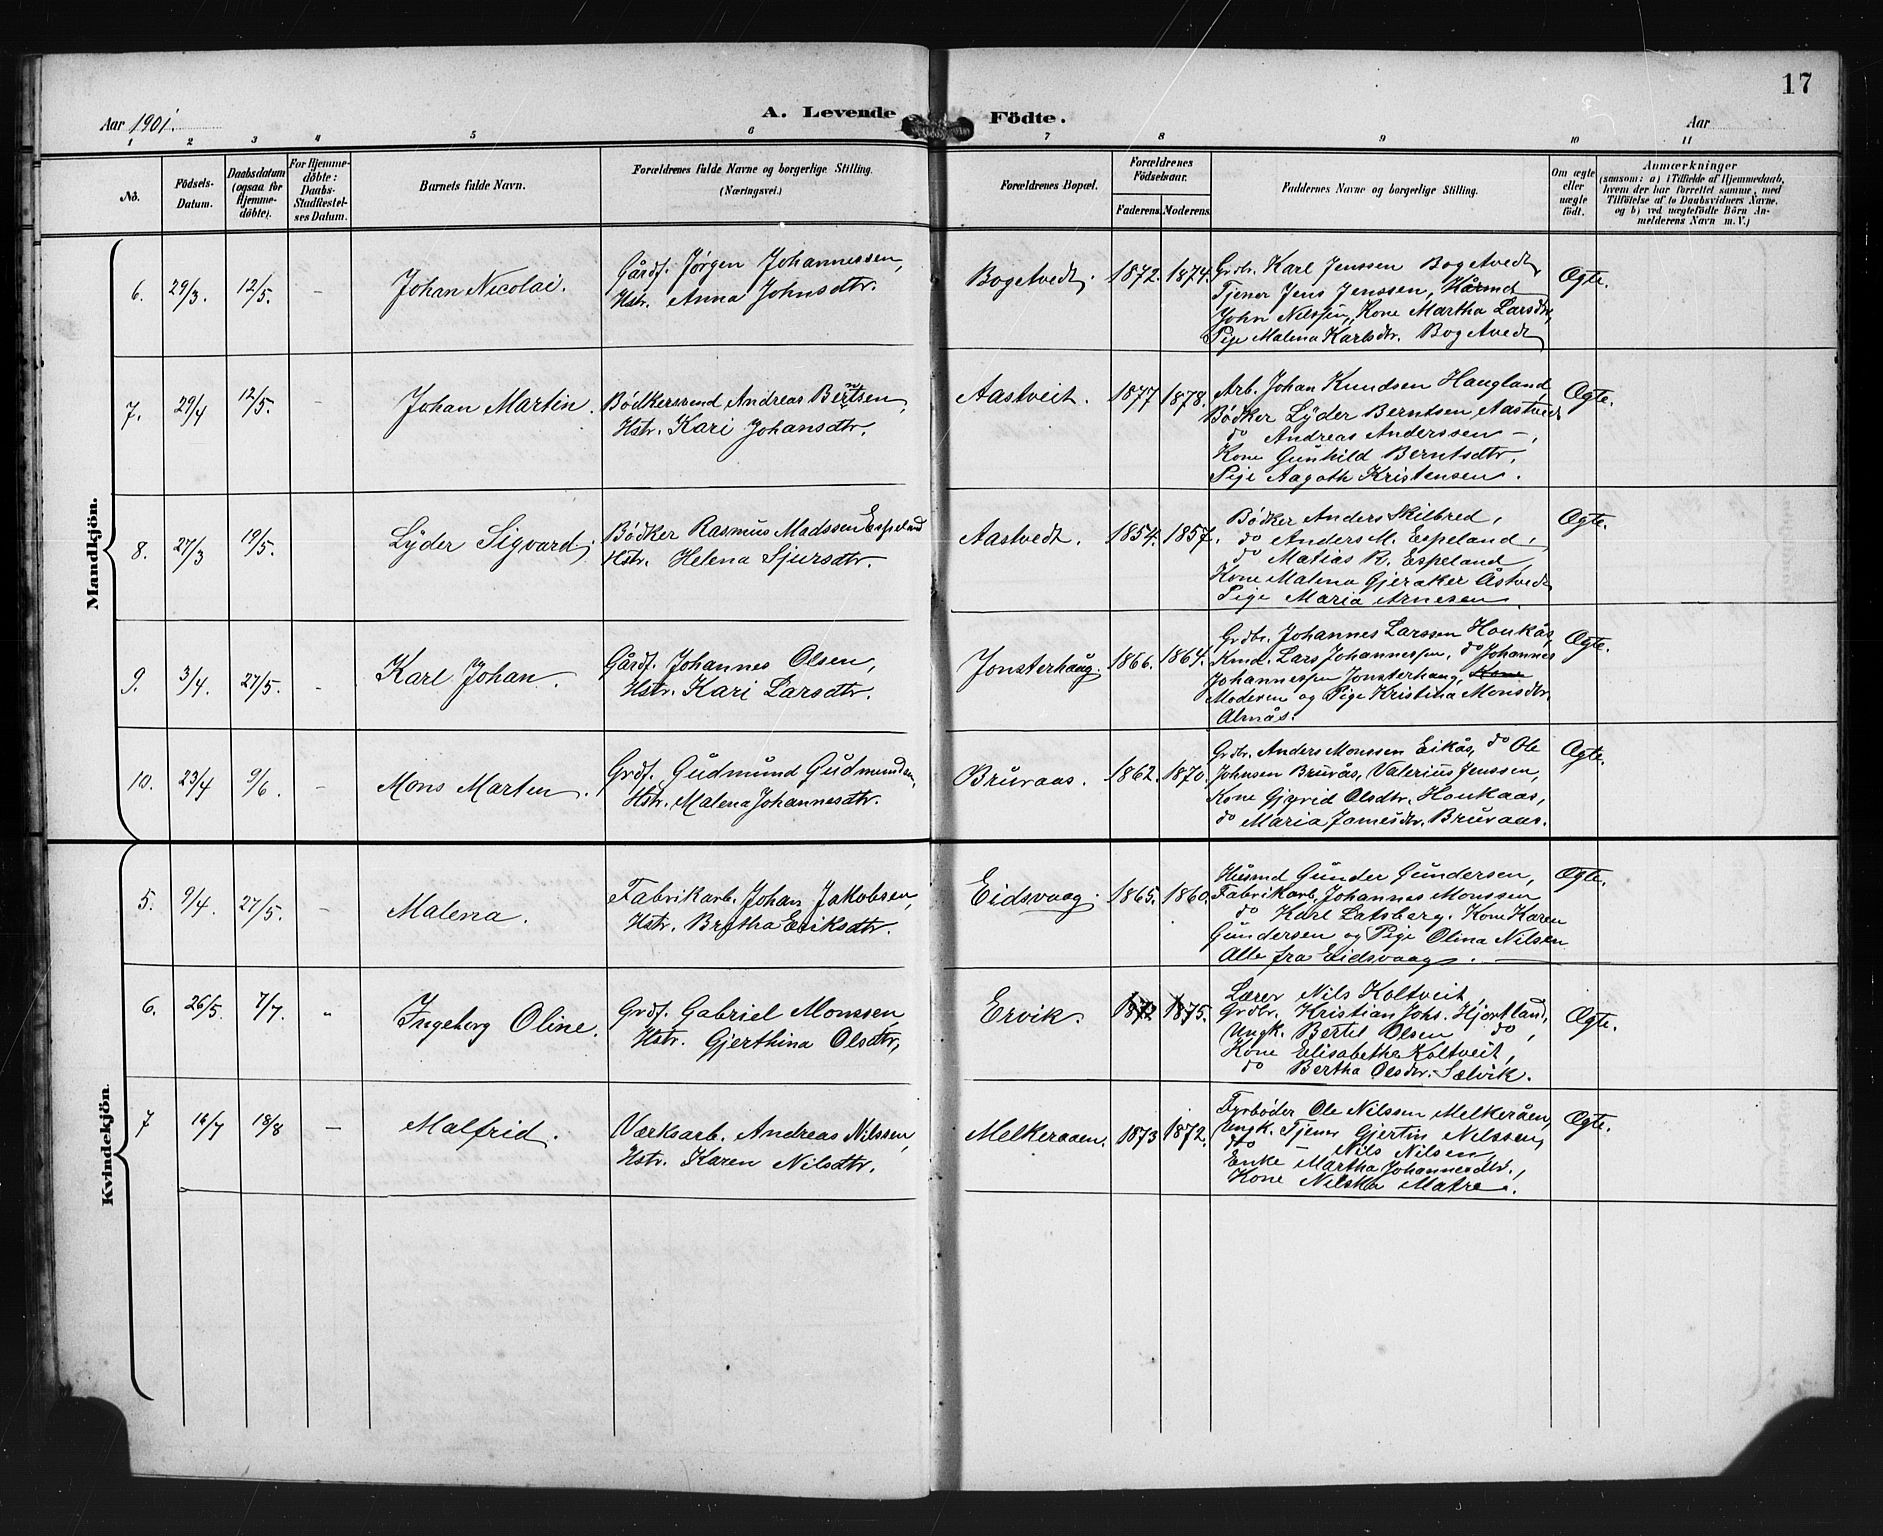 17
Aar 1901.
A. Levende Födte.
Aar
1 2 3 4 5 6 7 8 9 10 11
No.
Födsels-
Datum.
Daabsdatum
(ogsaa for
Hjemme-
döbte).
For Hjemme-
döbte:
Daabs-
Stadfæstel-
ses Datum.
Barnets fulde Navn.
Forældrenes fulde Navne og borgerlige Stilling.
(Næringsvei.)
Forældrenes Bopæl.
Forældrenes
Födselsaar.
Faderens. Moderens.
Faddernes Navne og borgerlige Stilling.
Om ægte
eller
uægte
födt.
Anmærkninger
(saasom: a) i Tilfælde af Hjemmedaab,
hvem der har forrettet samme, med
Tilföielse af to Daabsvidners Navne.
og b) ved uægtefödte Börn An-
melderens Navn m. V.)
Mandkjön.
6. 29/3. 12/5. – Johan Nicolai.
Gårdf. Jørgen Johannessen,
Hstr. Anna Johnsdtr.
Bogetvedt. 1872. 1874.
Grdbr. Karl Jenssen Bogetvedt,
Tjener Jens Jenssen, Hüsmd
John Nilssen, Kone Martha Larsdtr,
Pige Malena Karlsdtr. Bogetvedt
Ægte.
7. 29/4 12/5. – Johan Martin.
Bödkersvend Andreas Berntsen,
Hstr. Kari Johansdtr.
Aastveit. 1877 1878.
Arb. Johan Knudsen Haugland,
Bödker Lÿder Berntsen Aastvedt
do Andreas Anderssen –,
Kone Gunhild Berntsdtr,
Pige Aagoth Kristensen.
Ægte.
8. 27/3 19/5. Lÿder Sigvard,
Bödker Rasmus Madssen Espeland
Hstr. Helena Sjursdtr.
Aastvedt. 1854. 1857.
Bödker Anders Skilbred,
do Anders M. Espeland,
do Matias R. Espeland,
Kone Malena Gjeraker Åstvedt
Pige Maria Arnesen.
Ægte.
9. 3/4. 27/5. – Karl Johan.
Gårdf. Johannes Olsen,
Hstr. Kari Larsdtr.
Jonsterhaug. 1866. 1864.
Grdbr. Johannes Larssen Houkås,
Kmd. Lars Johannessen, do Johannes
Johannessen Jonsterhaug, Kone
Moderen og Pige Kristina Monsdtr.
Almås.
Ægte.
10. 23/4 9/6. – Mons Martin.
Grdf. Güdmünd Güdmundsen,
Hstr. Malena Johannesdtr.
Brüraas. 1862. 1870.
Grdbr. Anders Monssen Eikås, do Ole
Johnsen Brürås, Valerius Jenssen,
Kone Gjørid Olsdtr. Houkaas,
do Maria Jamesdtr. Brüraas.
Ægte.
Kvindekjön.
5. 9/4. 27/5. – Malena.
Fabrikarb. Johan Jakobsen,
Hstr. Brytha Eriksdtr.
Eidsvaag. 1865. 1860.
Hüsmd Günder Gündersen,
Fabrikarb. Johannes Monssen
do Karl Latsberg. Kone Karen
Gündersen og Pige Olina Nilsen
Alle fra Eidsvaag.
Ægte.
6. 26/5. 7/7. „ Ingeborg Oline.
Grdf. Gabriel Monssen
Hstr. Gjerthina Olsdtr,
Ervik. 1872 1875.
Lærer Nils Koltveit,
Grdbr. Kristian Johs. Hjortland,
Ungk. Bertel Olsen do,
Kone Elisabetha Koltveit,
do Bertha Olsdtr. Sælvik.
Ægte.
7 16/7 18/8 – Malfrid.
Værksarb. Andreas Nilssen,
Hstr. Karen Nilsdtr.
Melkeraaen. 1873 1872.
Fyrbøder Ole Nilssen Melkeråen,
Ungk. Tjener Gjertin Nilssen,
do – Nils Nilsen,
Enke Martha Johannesdtr.,
Kone Nilska Matre.
Ægte.